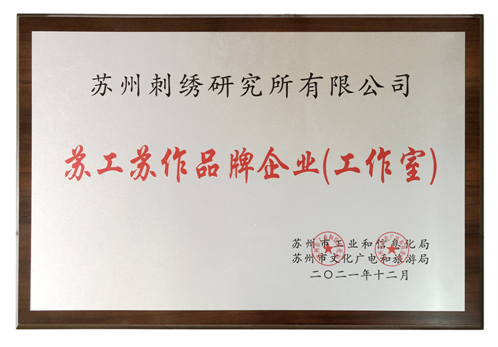 苏州刺绣研究所有限公司
苏工苏作品牌企业(工作室)
苏州市工业和信息化局
苏州市文化广电和旅游局
二〇二一年十二月